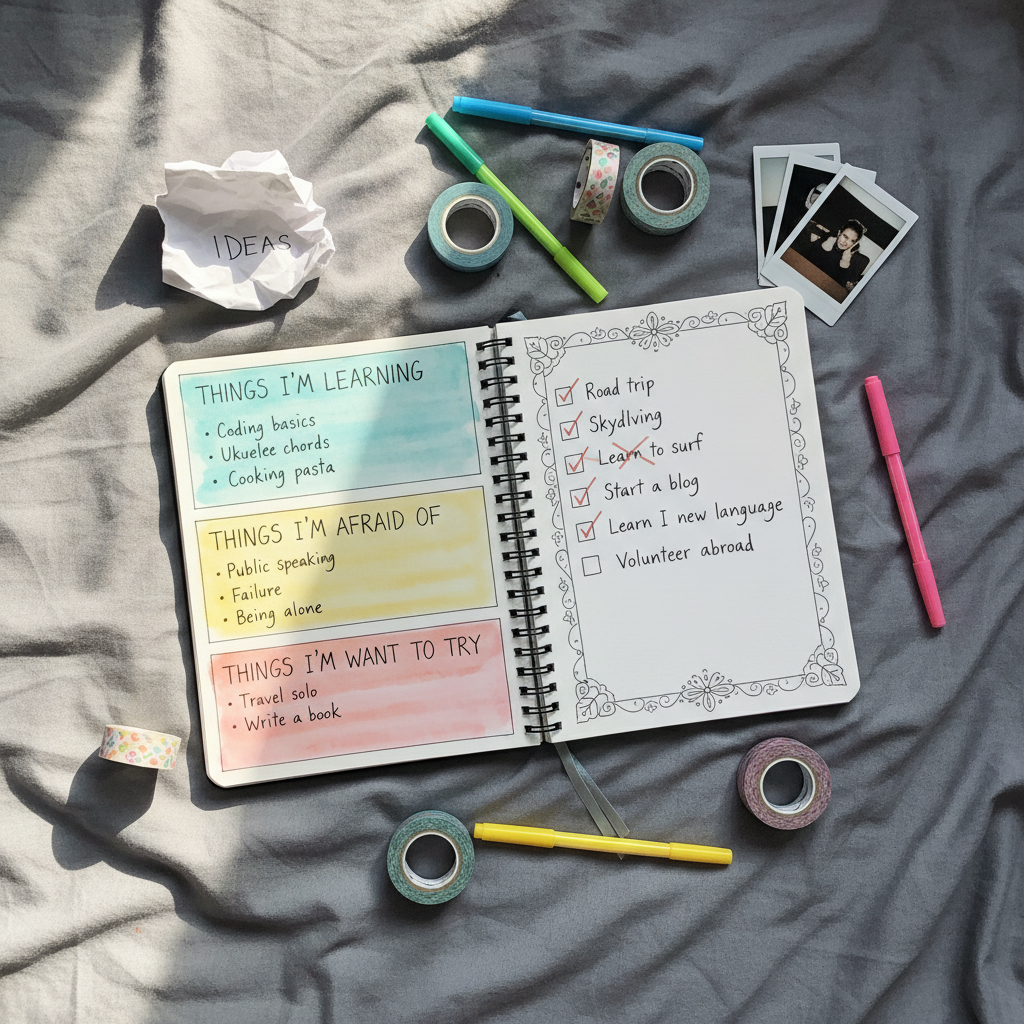 IDEAS
THINGS I'M LEARNING
• Coding basics
• Ukuelee chords
• Cooking pasta
THINGS I'M AFRAID OF
• Public speaking
• Failure
• Being alone
THINGS I'M WANT TO TRY
• Travel solo
• Write a book
Road trip
Skydlving
Learn to surf
Start a blog
Learn I new language
Volunteer abroad